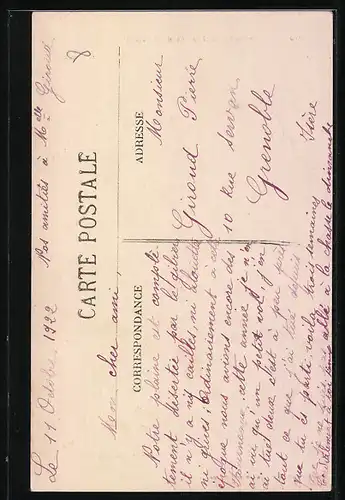 Nos amitiés à Mlle Giroud
Le 11 Octobre 1922
8
CARTE POSTALE
CORRESPONDANCE
ADRESSE
Mon cher ami,
Notre plaine est complè-
tement désertée par le gibier
il n'y a ni cailles, ni
ni grives; Ordinairement à cette
époque nous avions encore des
cette année je n'en
ai vu qu'un petit vol; j'en
ai tué deux c'est à peu près
tout ce que j'ai tué depuis
que tu es parti voilà trois semaines
allé à la chasse dimanche
Monsieur
Giroud Pierre
10 Rue Servan
Grenoble
Isère